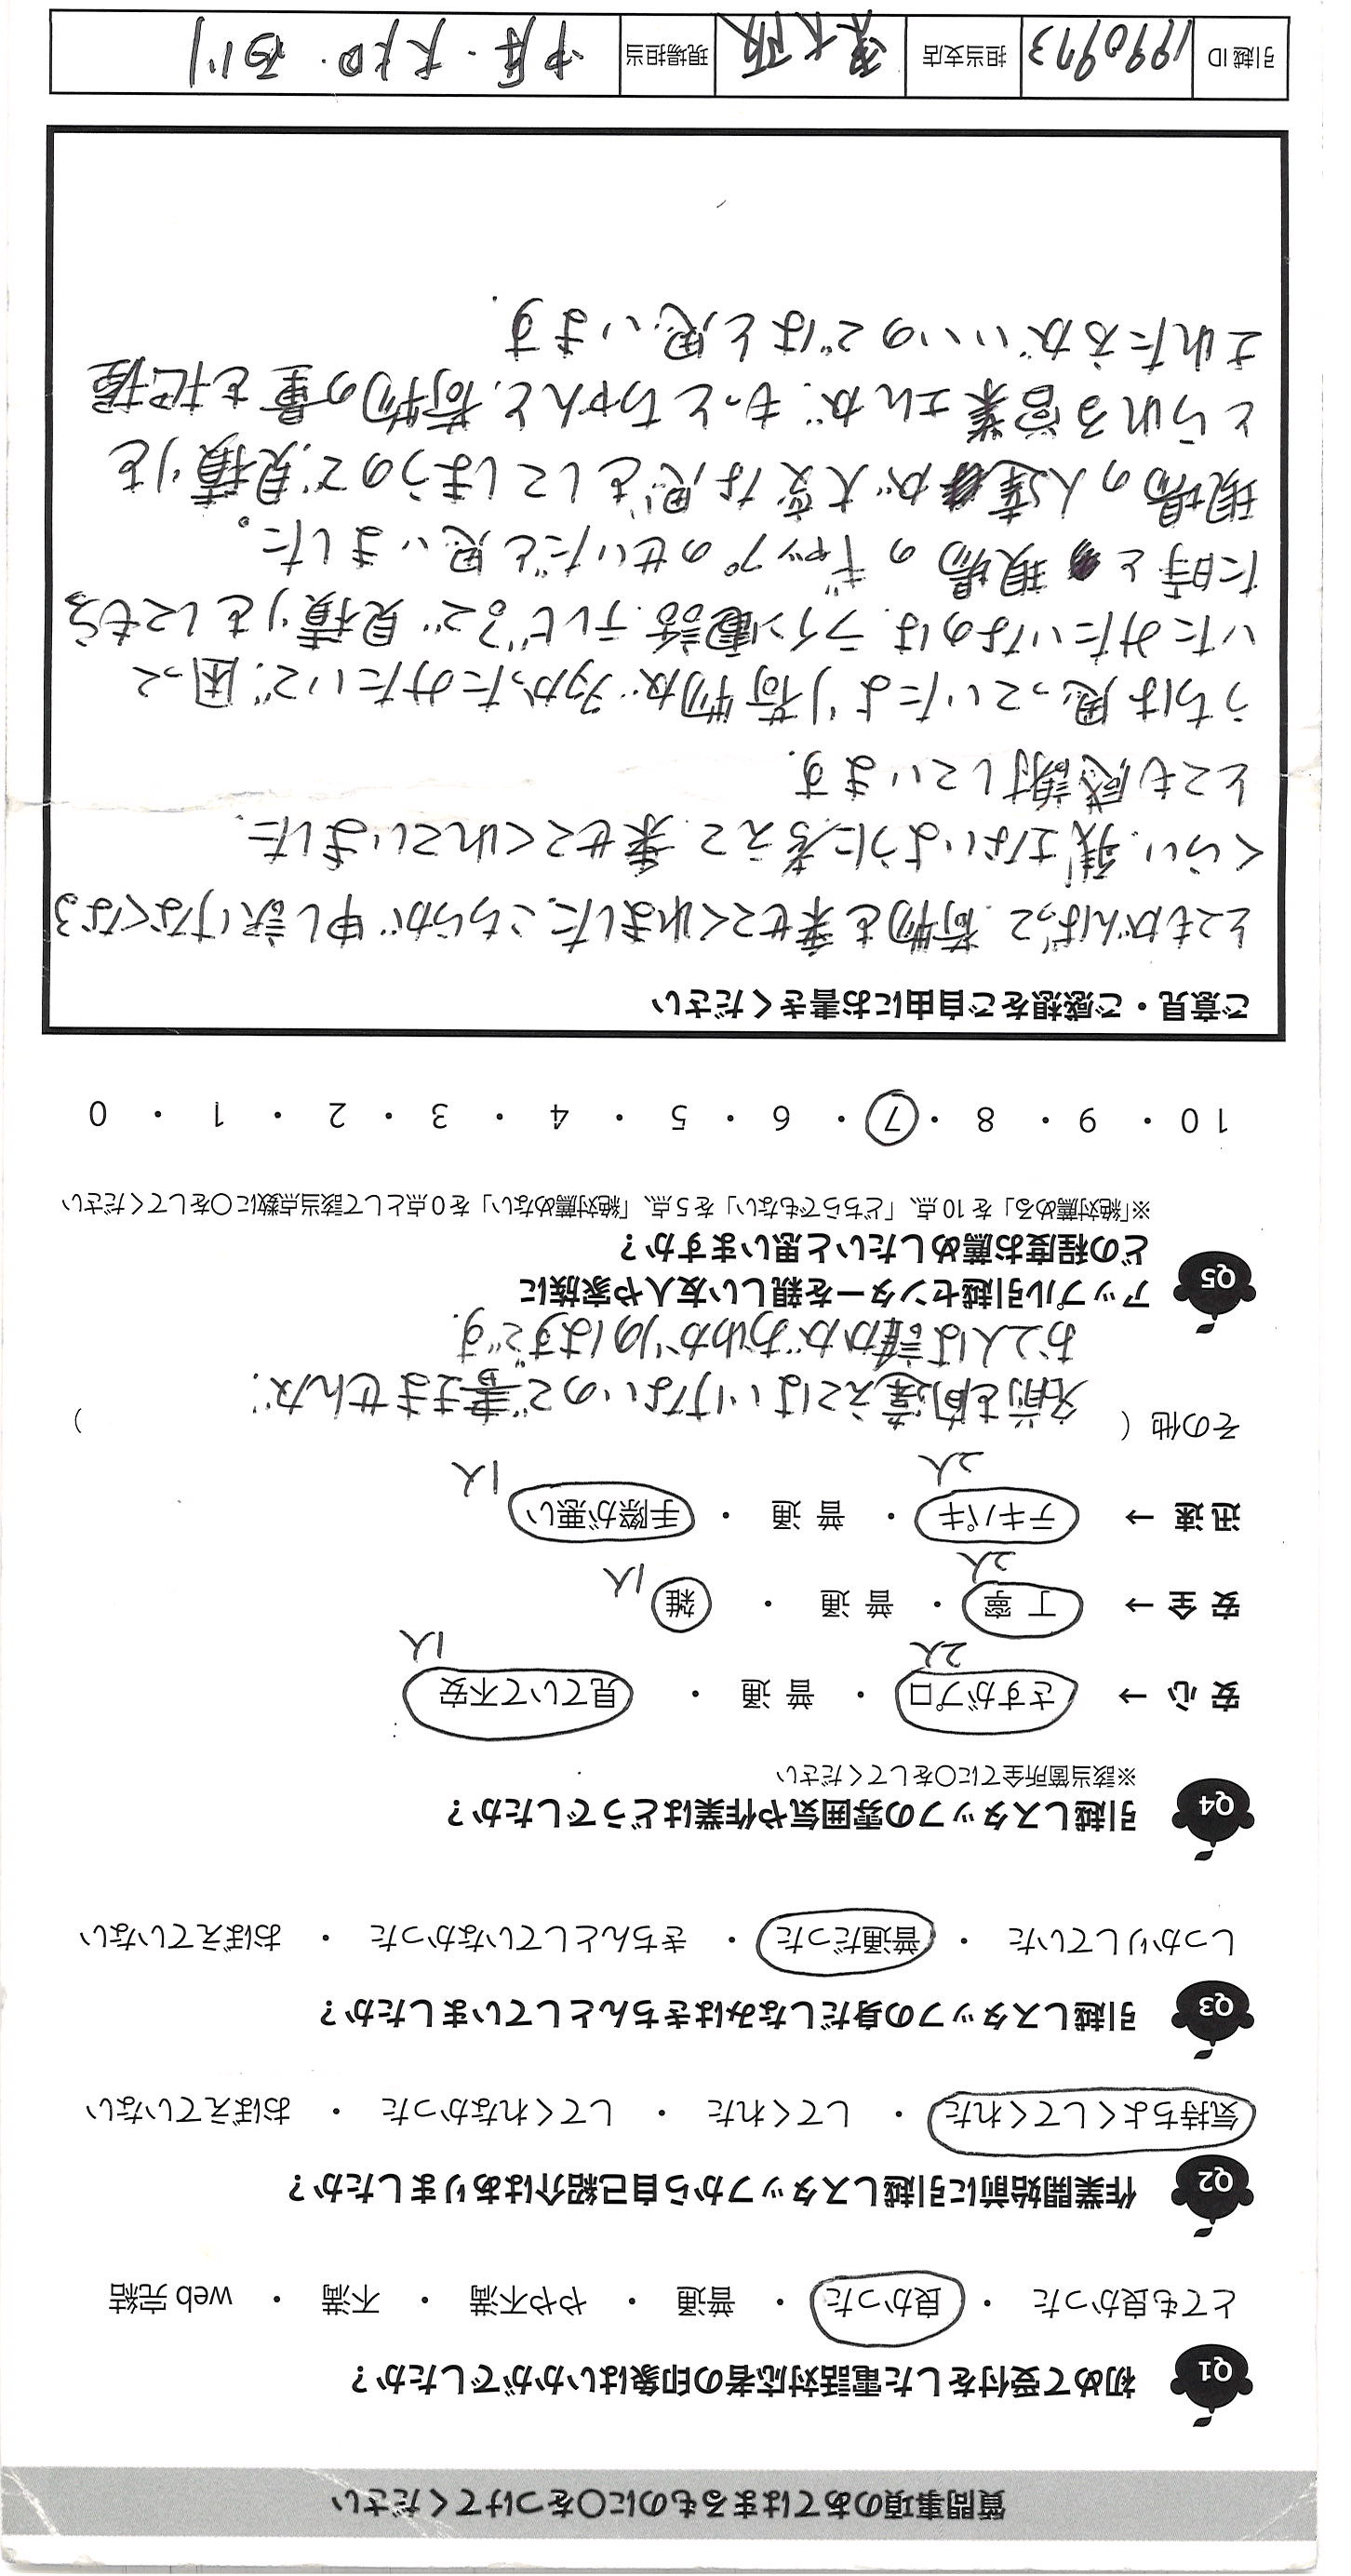 質問事項のあてはまるものに○をつけてください
Q1 初めて受付をした電話対応者の印象はいかがでしたか？
とても良かった ・ 良かった ・ 普通 ・ やや不満 ・ 不満 ・ web 完結
Q2 作業開始前に引越しスタッフから自己紹介はありましたか？
気持ちよくしてくれた ・ してくれた ・ してくれなかった ・ おぼえていない
Q3 引越しスタッフの身だしなみはきちんとしていましたか？
しっかりしていた ・ 普通だった ・ きちんとしていなかった ・ おぼえていない
Q4 引越しスタッフの雰囲気や作業はどうでしたか？
※該当箇所全てに○をしてください
安心 → さすがプロ ・ 普通 ・ 見ていて不安
2人 1人
安全 → 丁寧 ・ 普通 ・ 雑
2人 1人
迅速 → テキパキ ・ 普通 ・ 手際が悪い
2人 1人
その他（ 名前を間違えてはいけないので書きませんが、 ）
お2人は誰かがおわかりのはずです.
Q5 アップル引越センターを親しい友人や家族に
どの程度お薦めしたいと思いますか？
※「絶対薦める」を 10 点、「どちらでもない」を 5 点、「絶対薦めない」を 0 点として該当点数に○をしてください
10 ・ 9 ・ 8 ・ 7 ・ 6 ・ 5 ・ 4 ・ 3 ・ 2 ・ 1 ・ 0
ご意見・ご感想をご自由にお書きください
とてもがんばって 荷物を乗せてくれました.こちらが 申し訳けなくなる
くらい. 残さないように考えて 乗せてくれていました.
とても感謝しています.
うちは思っていたより荷物が多かったみたいで. 困って
いたみたいなのは. ライン電話.テレビ?で 見積りをしてもらっ
た時と 現場 の ギャップのせいだと思いました。
現場の人達が大変な思いをしてしまうので.見積りを
とられる営業さんが もっとちゃんと.荷物の量を把握
された方がいいのではと思います.
引越 ID 1990973 担当支店 東大阪 現場担当